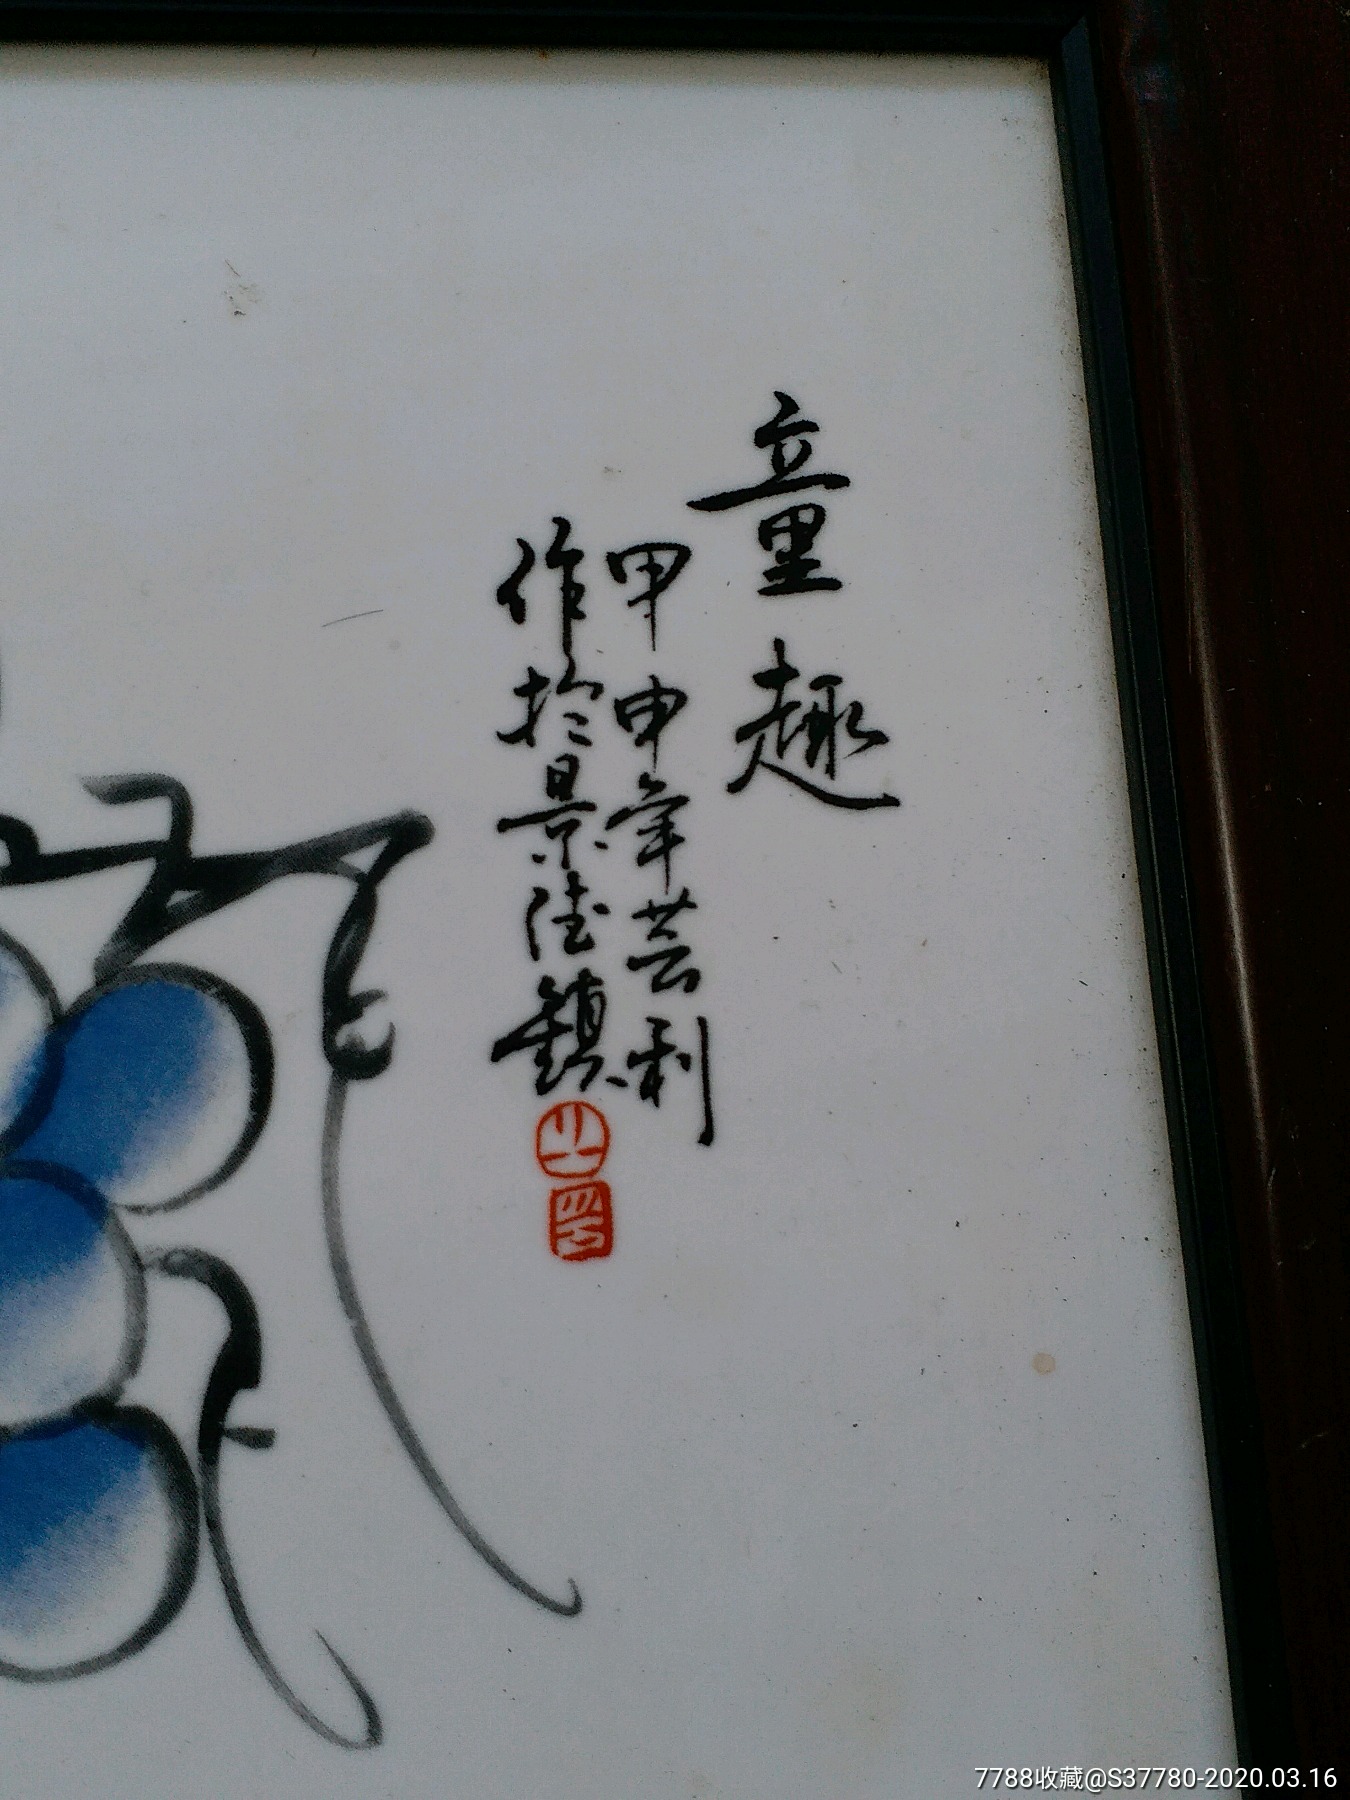 童趣
甲申年芸利
作於景德鎮
7788收藏@S37780-2020.03.16